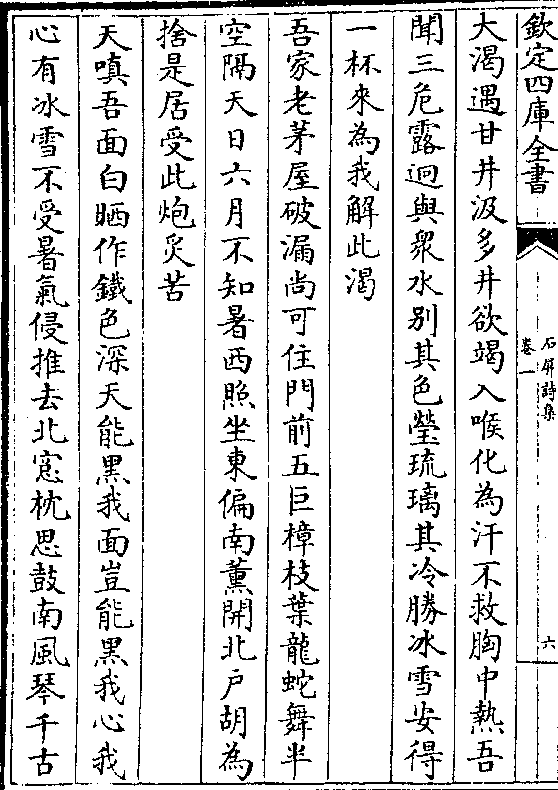 欽定四庫全書
石屏詩集
卷一
六
大渴遇甘井汲多井欲竭入喉化為汗不救胸中熱吾
聞三危露迥與衆水别其色瑩琉璃其冷勝冰雪安得
一杯來為我解此渴
吾家老茅屋破漏尚可住門前五巨樟枝葉龍蛇舞半
空隔天日六月不知暑西照坐東偏南薰開北戶胡為
捨是居受此炮炙苦
天嗔吾面白晒作鐵色深天能黒我面豈能黒我心我
心有冰雪不受暑氣侵推去北窻枕思鼓南風琴千古